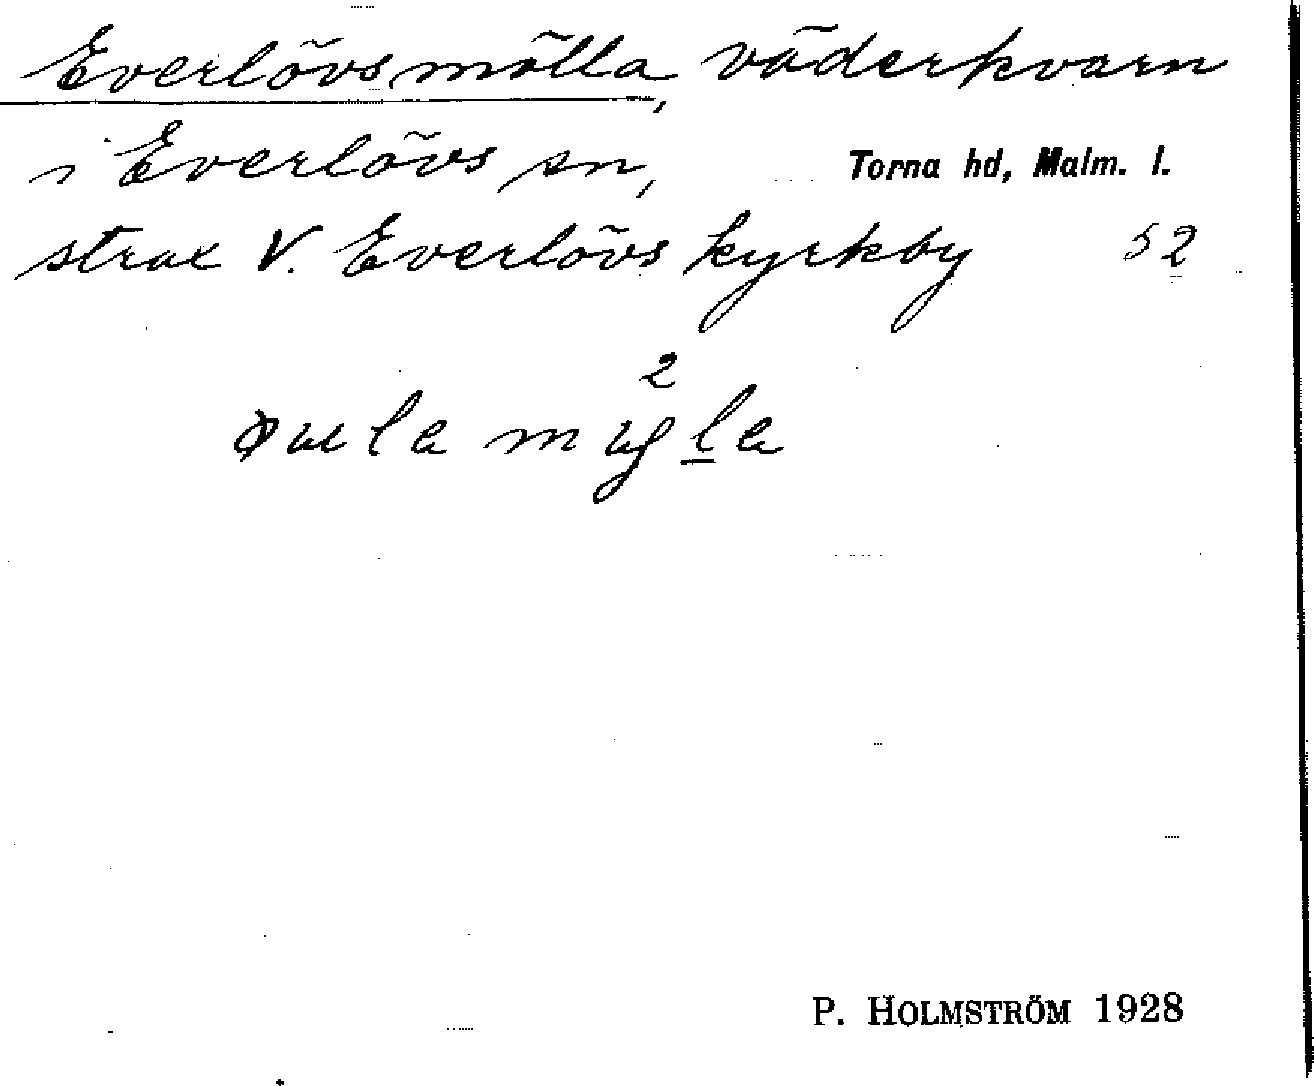 Everlövsmölla, väderkvarn
i Everlövs sn, Torna hd, Malm. l.
strax V. Everlövs kyrkby 52
2
P. HOLMSTRÖM 1928